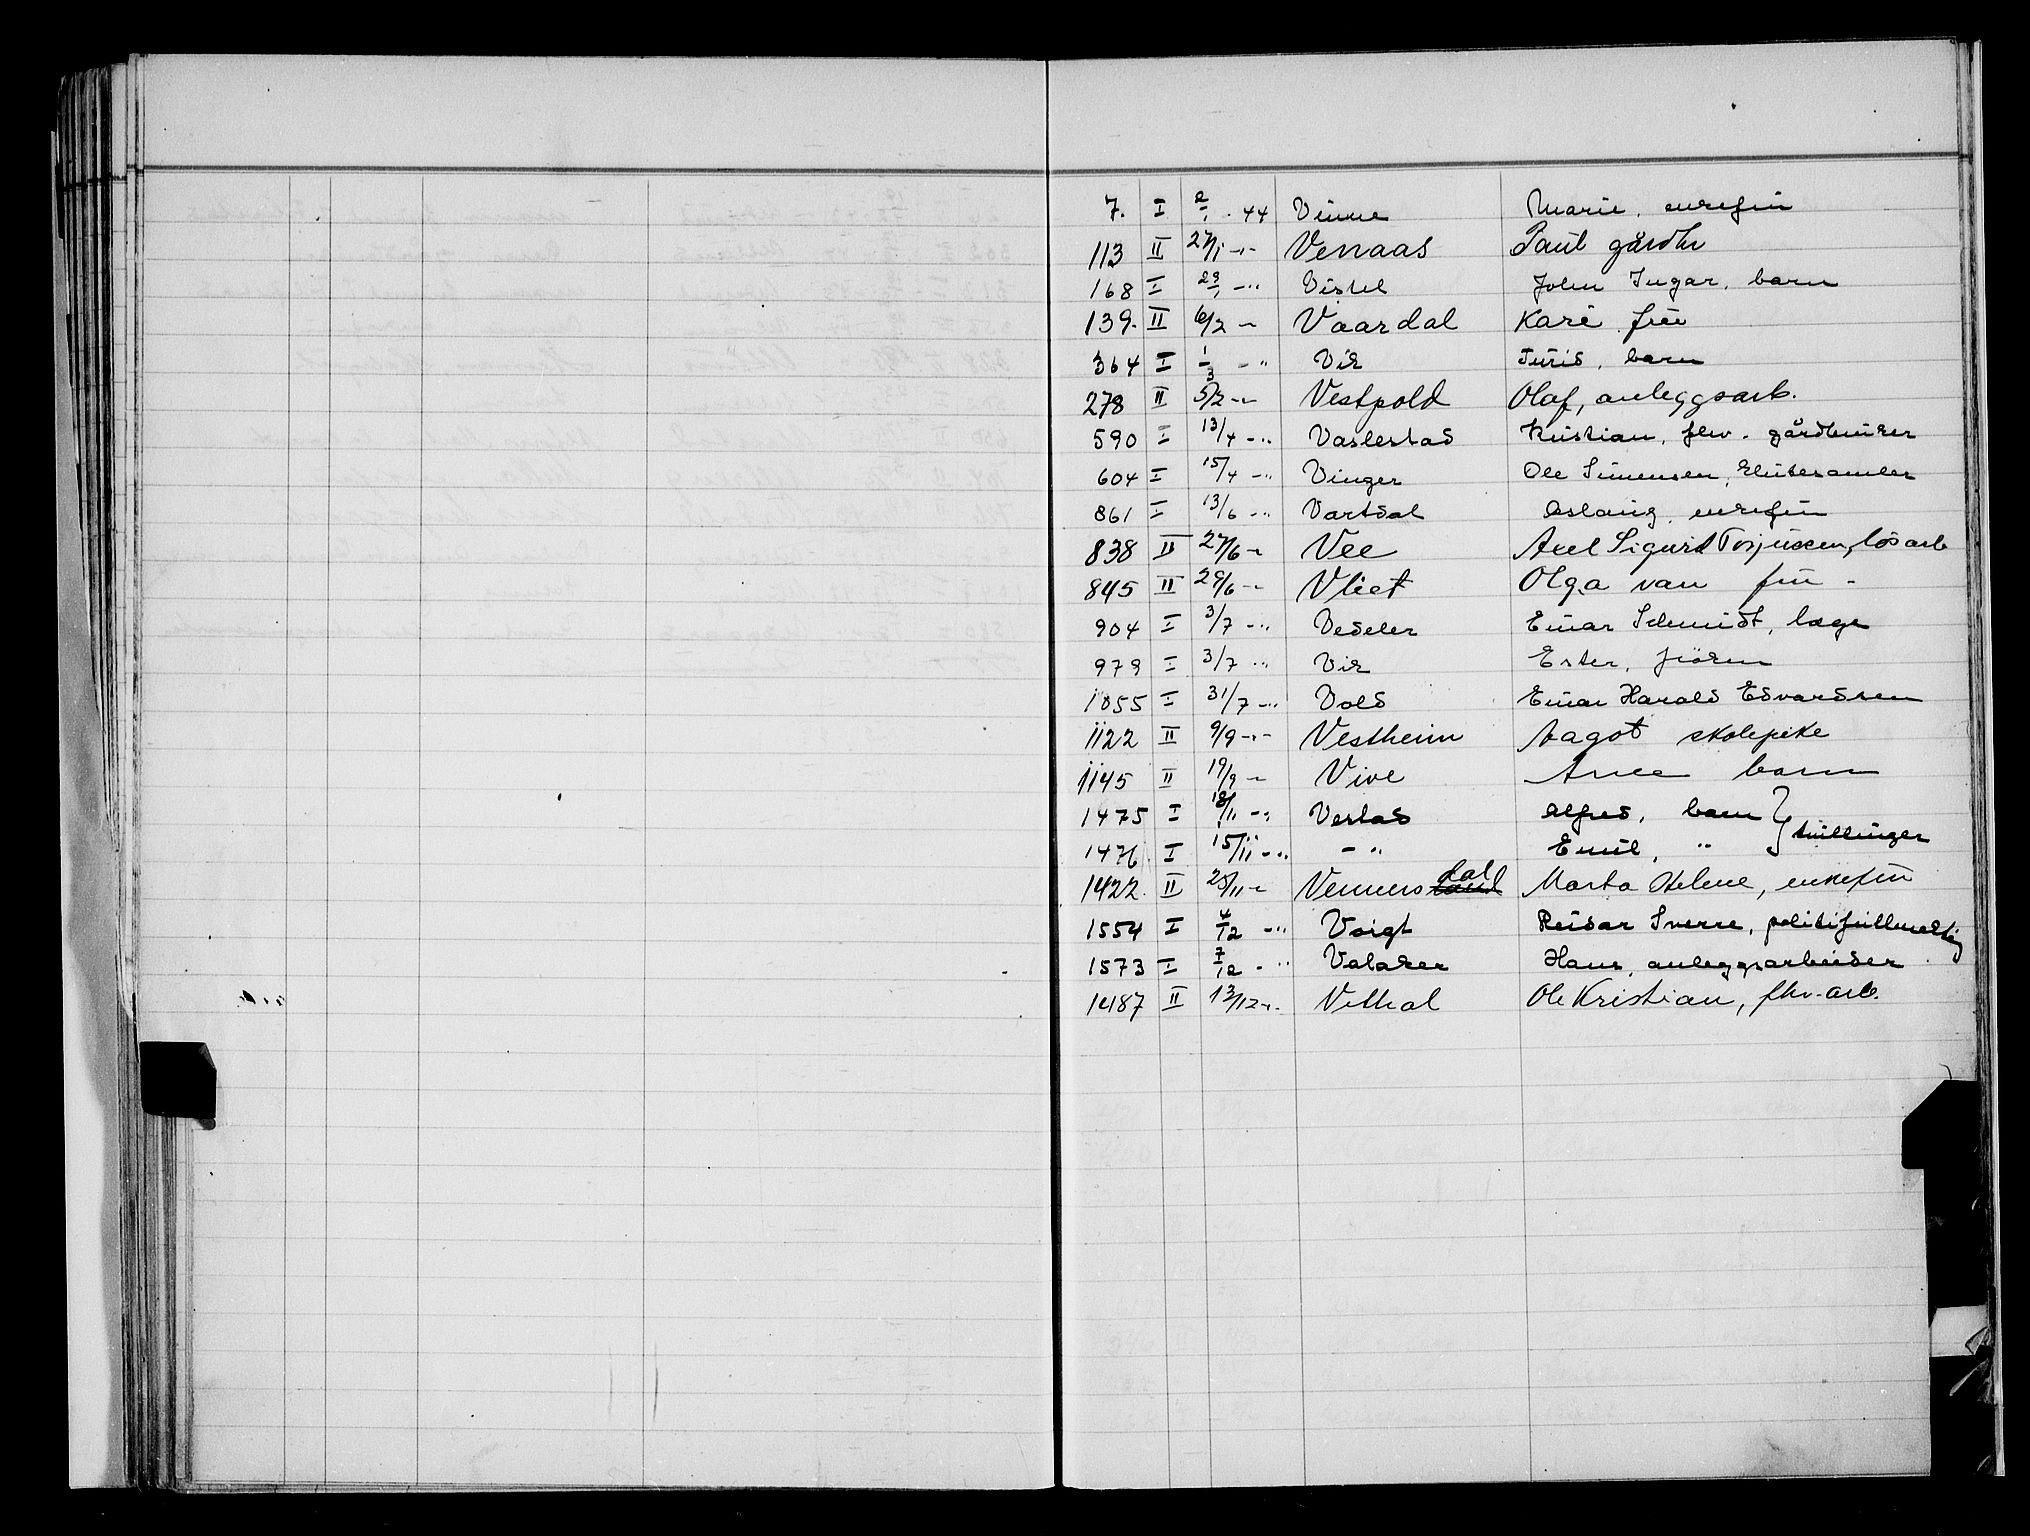 7. I 2/1 . 44 Vinne Marie, enkefru
113 II 27/1 -"- Venaas Paul gårdbr
168 I 29/1 -"- Vistel John Ingar, barn
139. II 6/2 - Vaardal Kari frue
364 I 1/3 -"- Vik Turid, barn
278 II 5/2 -"- Vestpold Olaf, anleggsarb.
590 I 13/4 -"- Vaslestad Kristian, fhv. gårdbruker
604 I 15/4 -"- Vinger Ole Simensen,
861 I 13/6 -"- Vartdal Aslaug, enkefru
838 II 27/6 - Vee Axel Sigurd Torjussen, løsarb
845 II 29/6 -"- Vliet Olga van fru -
904 I 3/7 -"- Vedeler Einar Schmidt, læge
979 I 3/7 -"- Vik Ester, frøken
1055 I 31/7 -"- Vold Einar Harald Edvardsen
1122 II 9/9 -"- Vestheim Aagot skolepike
1145 II 19/9 - Vive Anee barn
1475 I 18/11 -"- Vestad Alfred, barn } tvillinger
1476 I 15/11 -"- - " Emil, "
1422. II 25/11 - Vennersdal Marta Helene, enkefru
1554 I 4/12 -"- Voigt Reidar Sverre, politifullmektig
1573 I 7/12 -"- Valaker Hans, anleggsarbeider
1487 II 13/12 -"- Vethal Ole Kristian, fhv. arb.